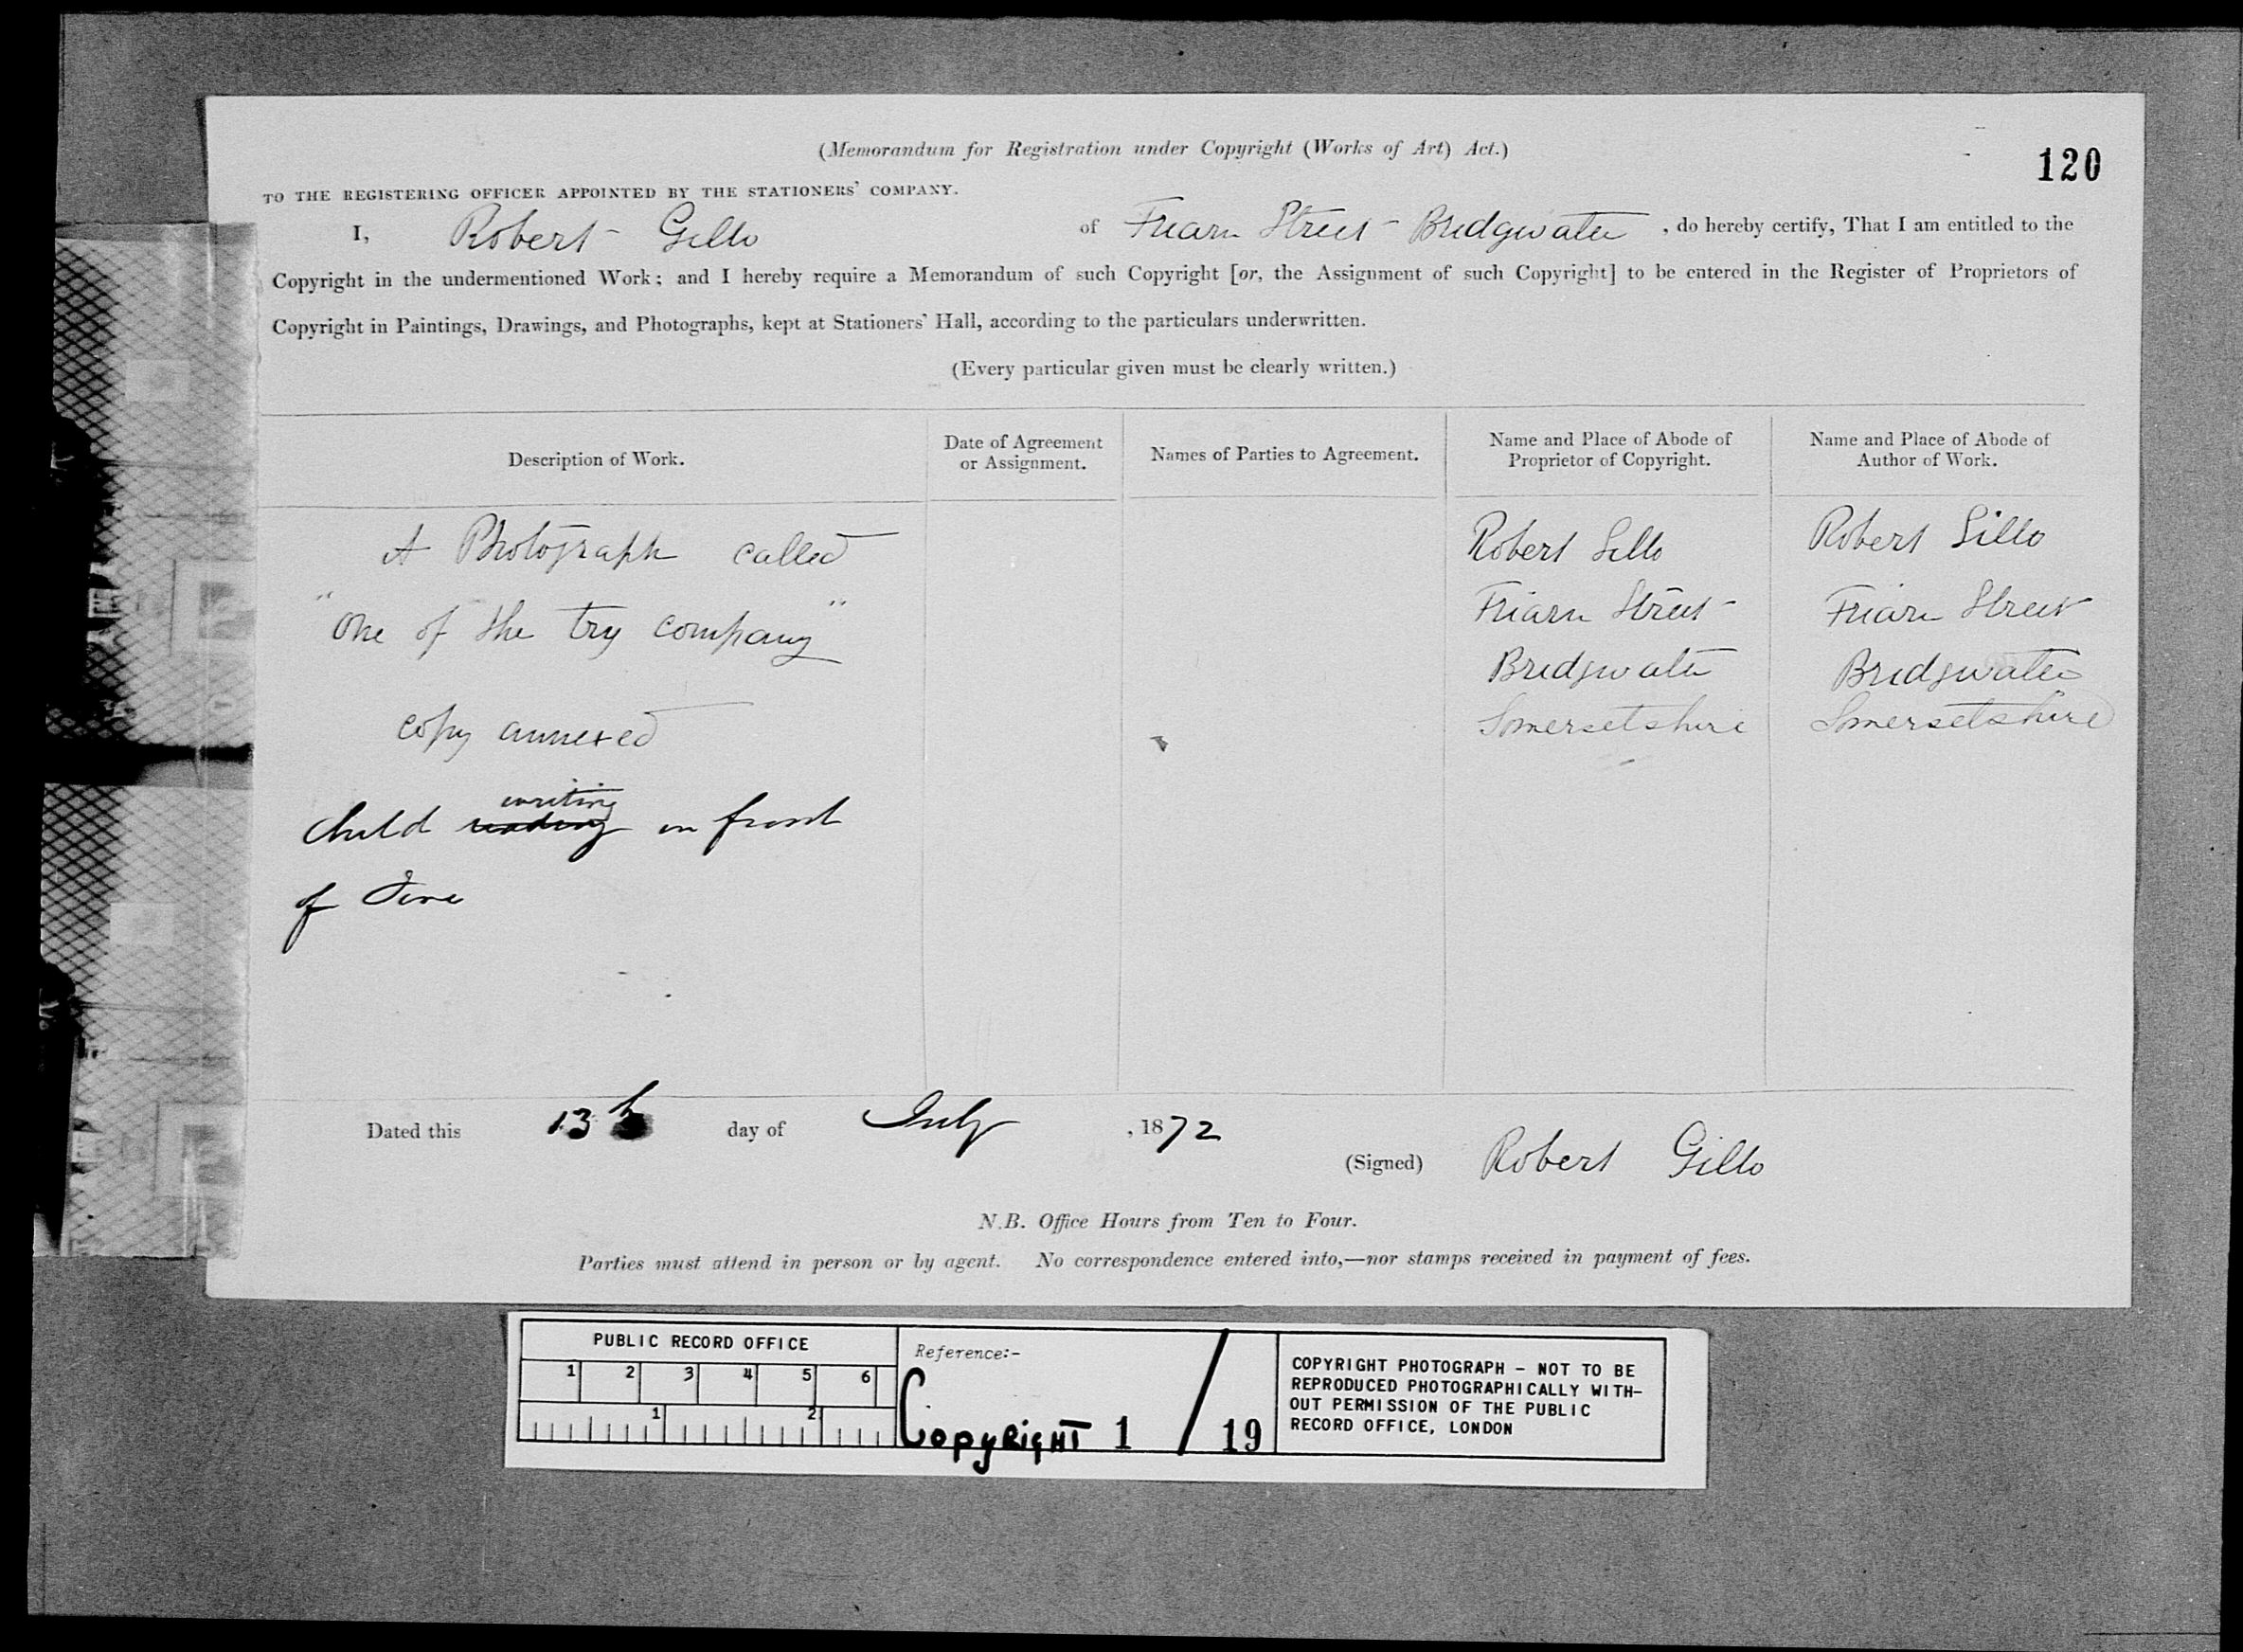 (Memorandum for Registration under Copyright (Works of Art) Act.)
120
TO THE REGISTERING OFFICER APPOINTED BY THE STATIONERS' COMPANY.
I, Robert Gillo of Friarn Street Bridgwater, do hereby certify, That I am entitled to the
Copyright in the undermentioned Work; and I hereby require a Memorandum of such Copyright [or, the Assignment of such Copyright] to be entered in the Register of Proprietors of
Copyright in Paintings, Drawings, and Photographs, kept at Stationers' Hall, according to the particulars underwritten.
(Every particular given must be clearly written.)
Description of Work.
Date of Agreement
or Assignment.
Names of Parties to Agreement.
Name and Place of Abode of
Proprietor of Copyright.
Name and Place of Abode of
Author of Work.
A Photograph called
"One of the try company"
copy annexed
Child reading writing in front
of
Robert Gillo
Friarn Street
Bridgwater
Somersetshire
Robert Gillo
Friarn Street
Bridgwater
Somersetshire
Dated this 13th day of July, 1872
(Signed) Robert Gillo
N.B. Office Hours from Ten to Four.
Parties must attend in person or by agent. No correspondence entered into,—nor stamps received in payment of fees.
PUBLIC RECORD OFFICE
1 2 3 4 5 6
1 2
Reference:-
COPYRIGHT 1 / 19
COPYRIGHT PHOTOGRAPH - NOT TO BE
REPRODUCED PHOTOGRAPHICALLY WITH-
OUT PERMISSION OF THE PUBLIC
RECORD OFFICE, LONDON